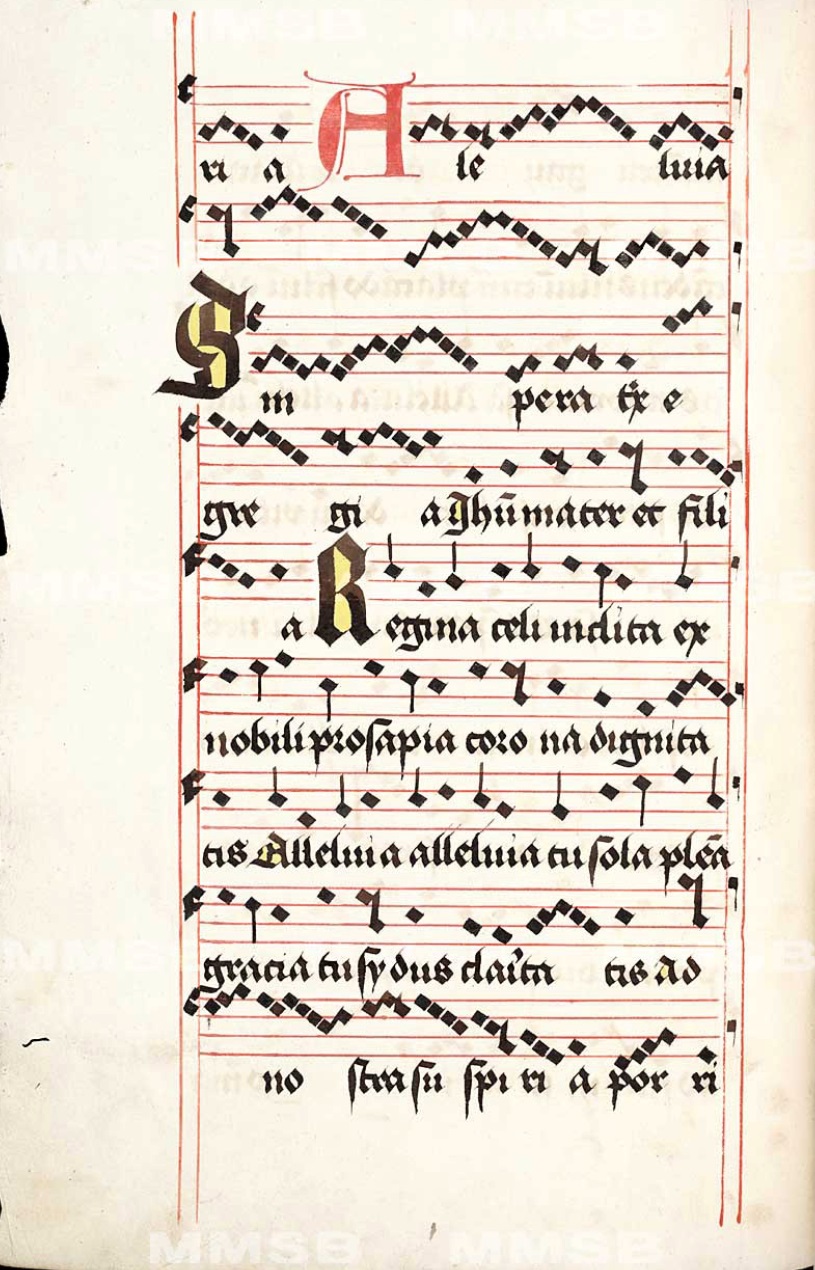 ri a A le luia
Im pera tx e
gre gi a Jhū mater et fili
a Regina celi inclita ex
nobili prosapia coro na dignita
tis Alleluia alleluia tu sola plēa
gracia tu sydus clarita tis ad
no stra su spi ri a por ri
MMSB